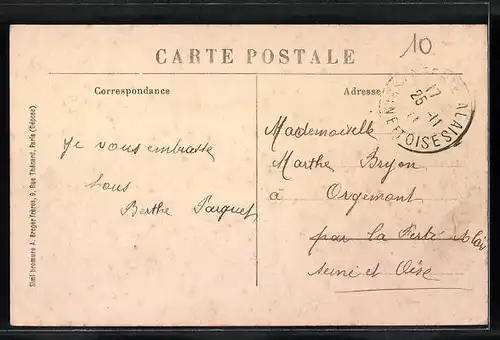 10
CARTE POSTALE
Correspondance
Adresse
17
25 - 11
11
SEINE ET OISE
Je vous embrasse
tous
Berthe Parquet
Mademoiselle
Marthe Bryon
à Orgemont
par la Ferté Alais
Seine et Oise
Simi-bromure A. Breger frères, 9, Rue Thénard, Paris (Déposé)